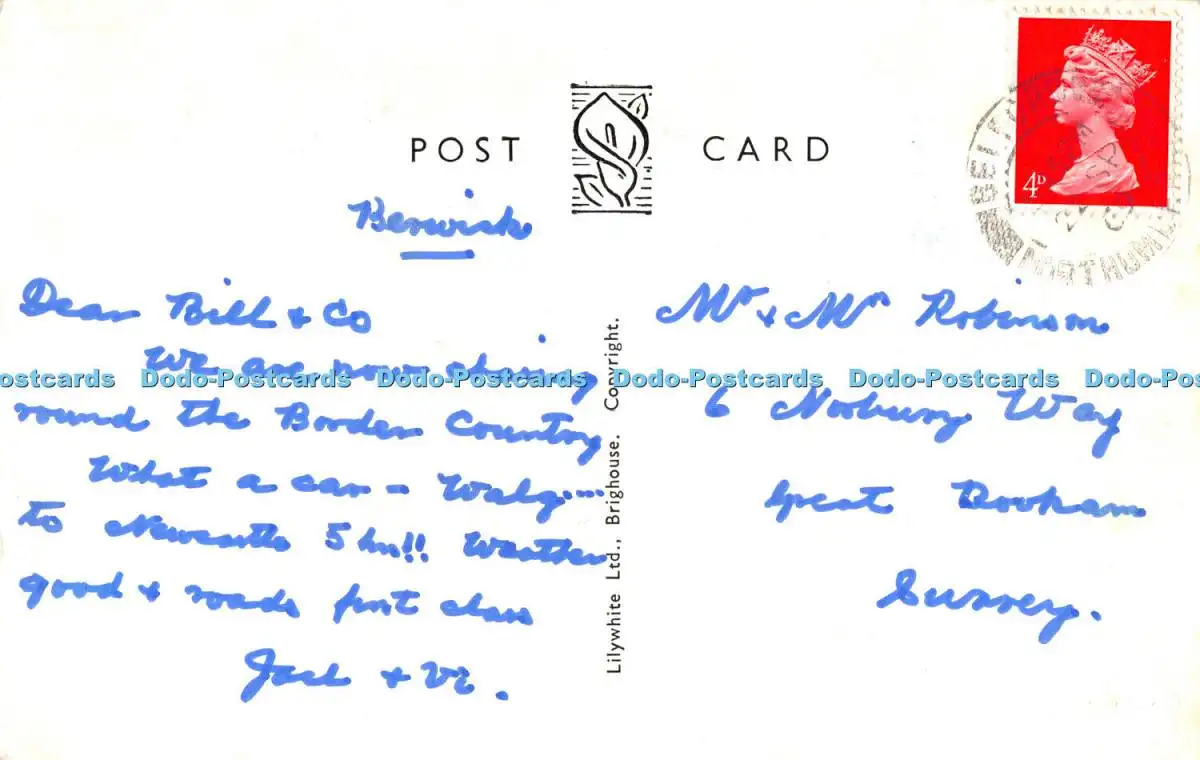 POST CARD
Berwick
Dear Bill & Co
We are now driving
round the Border Country
What a car - Walg...
to Newcastle 5 hrs!! Weather
good & roads first class
Jack & Vi.
Mr & Mrs Robinson
6 Norbury Way
Great Bookham
Surrey.
Lilywhite Ltd., Brighouse. Copyright.
4D
BELFORD
NORTHUM
ostcards Dodo-Postcards Dodo-Postcards Dodo-Postcards Dodo-Postcards Dodo-Pos